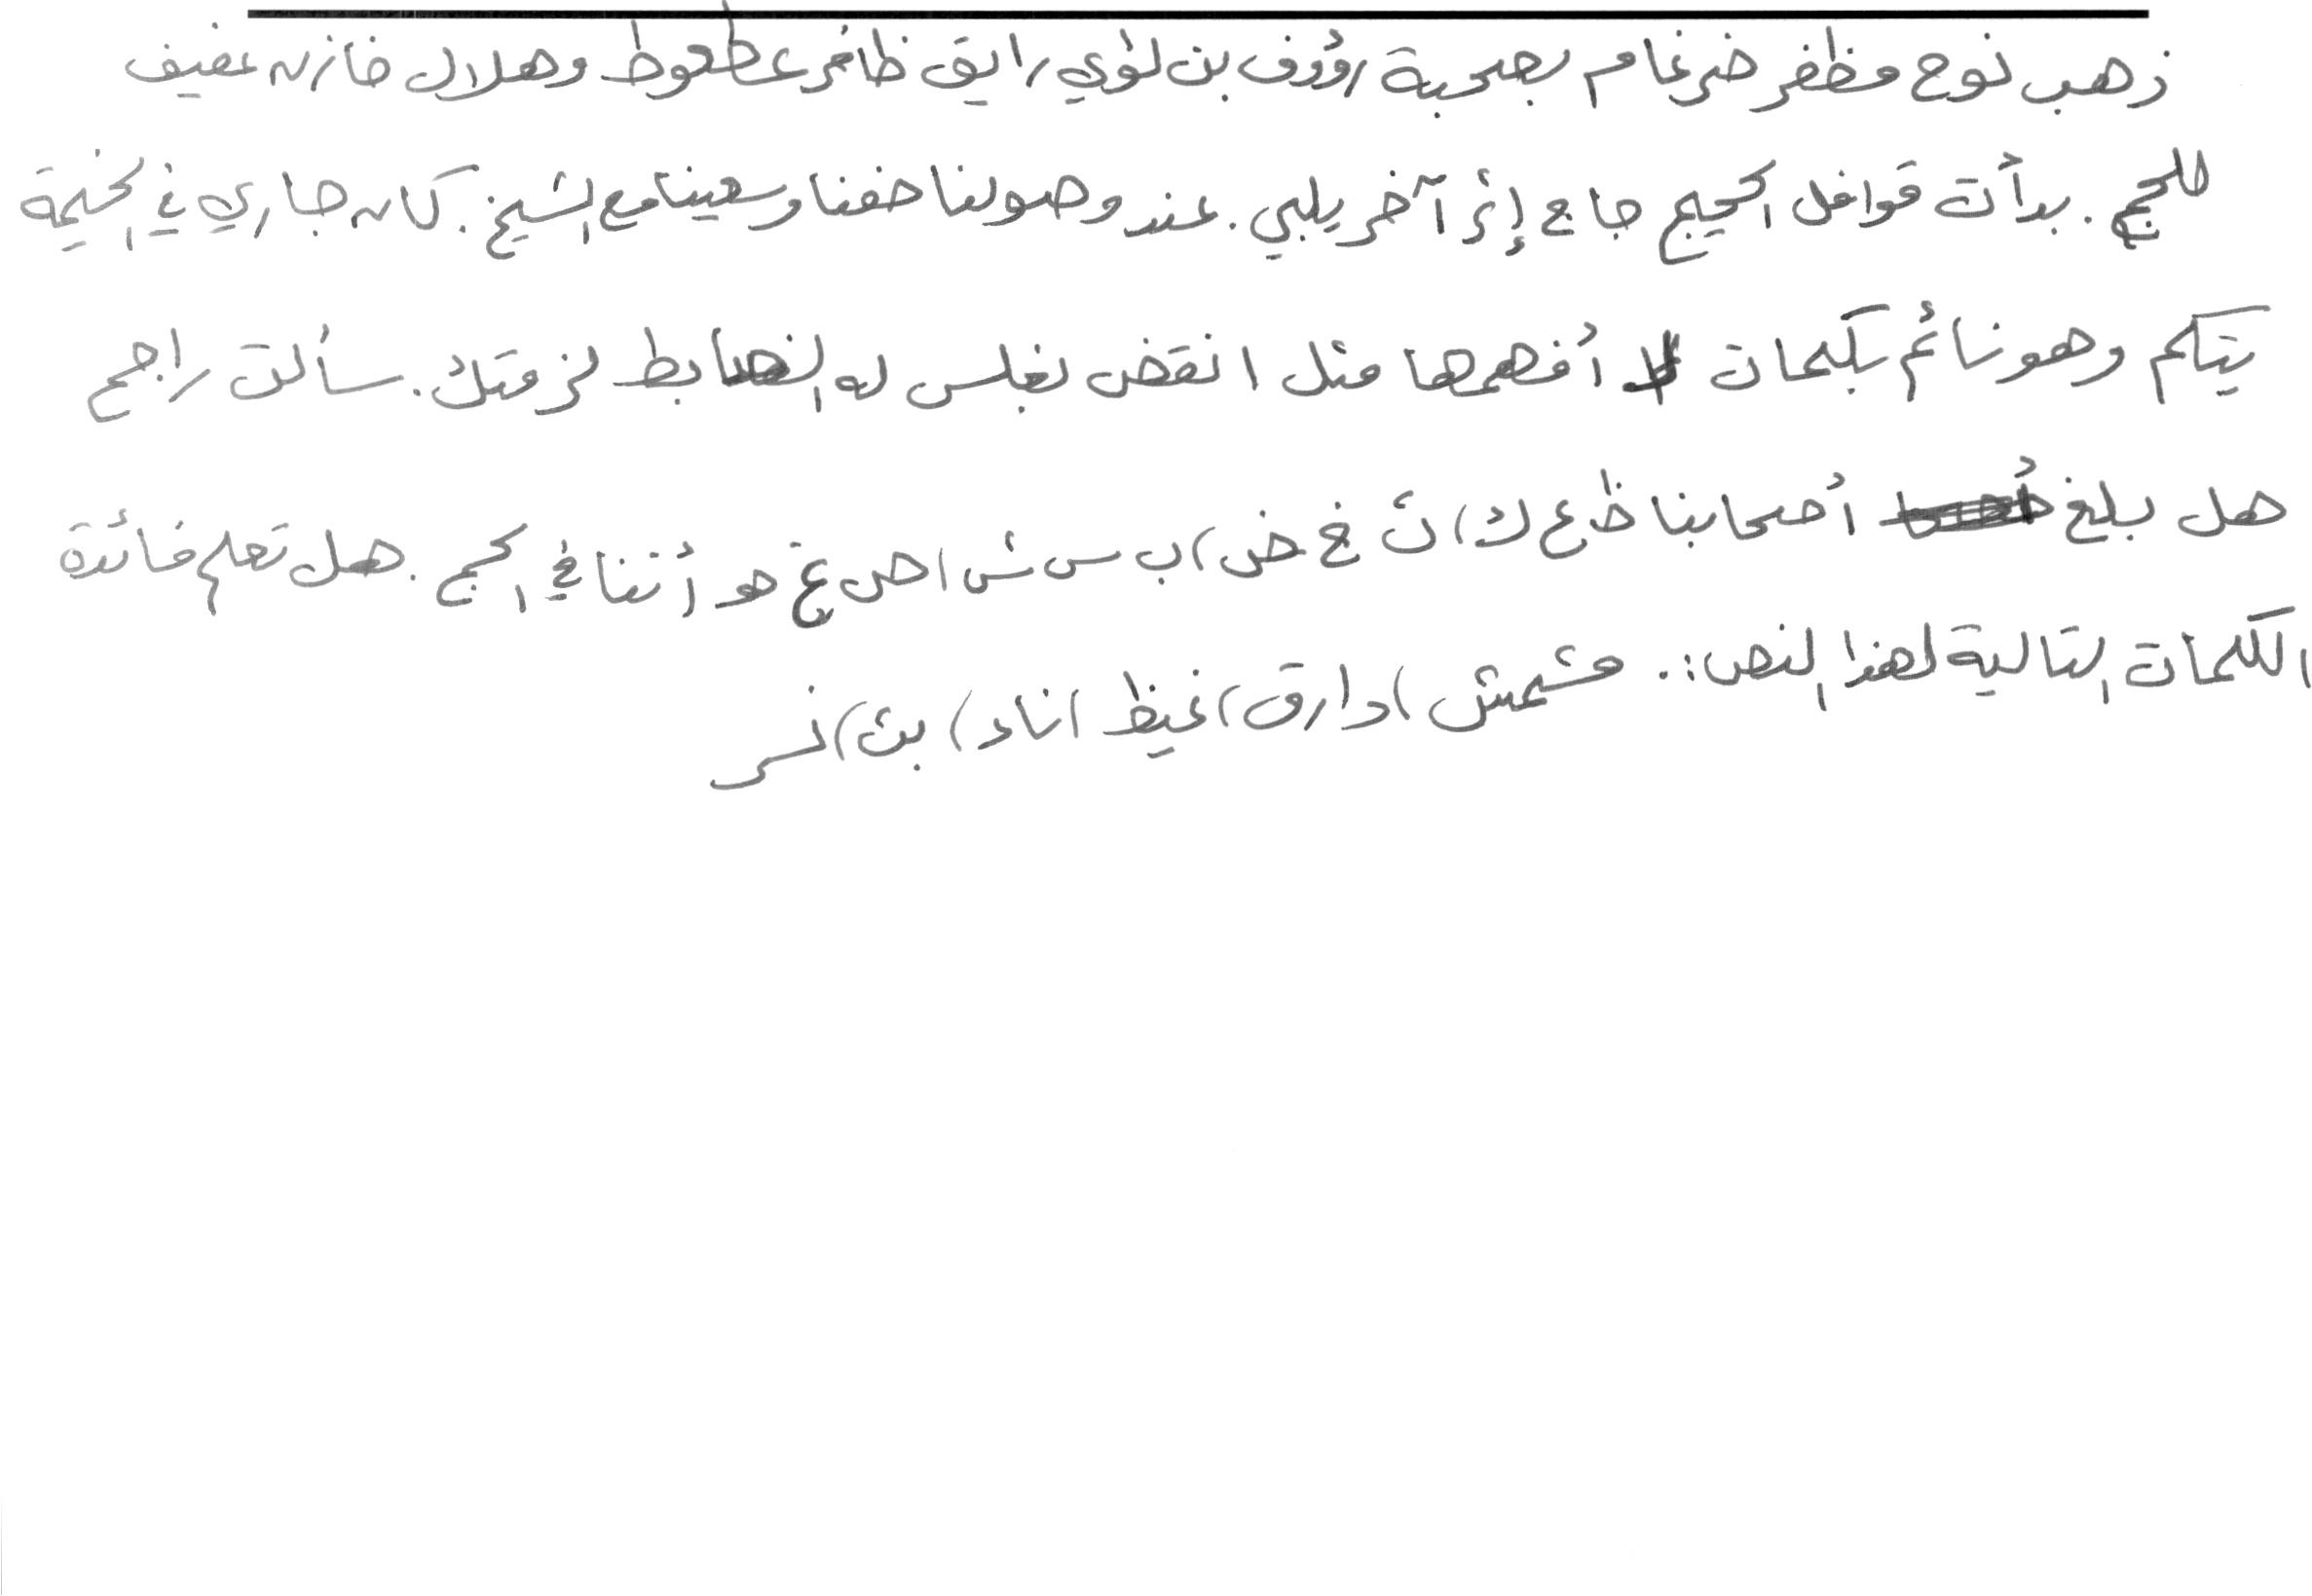 ذهب نوح مظفر ضرغام بصحبة رؤوف بن لؤي رايق ظافر عطعوط وهلال خازن عفيف
للحج. بدأت قوافل الحجيج جاء ح إذ آخر يلبي. عند وصولنا خفنا وسعينا مع الشيخ. كان جاري في الخيمة
يتكلم وهو نائم بكلمات لا أفهمها مثل انقض نغلس له الضابط لزمتك. سألت راجح
هل بلغ أصحابنا ظ ع ك، ث خ ض، ب س ش، ص غ هو أثنا في الحج. هل تعلم فائدة
الكلمات التالية لهذا النص:. مشمش، دارق، غيظ، ناد، بث، نسر